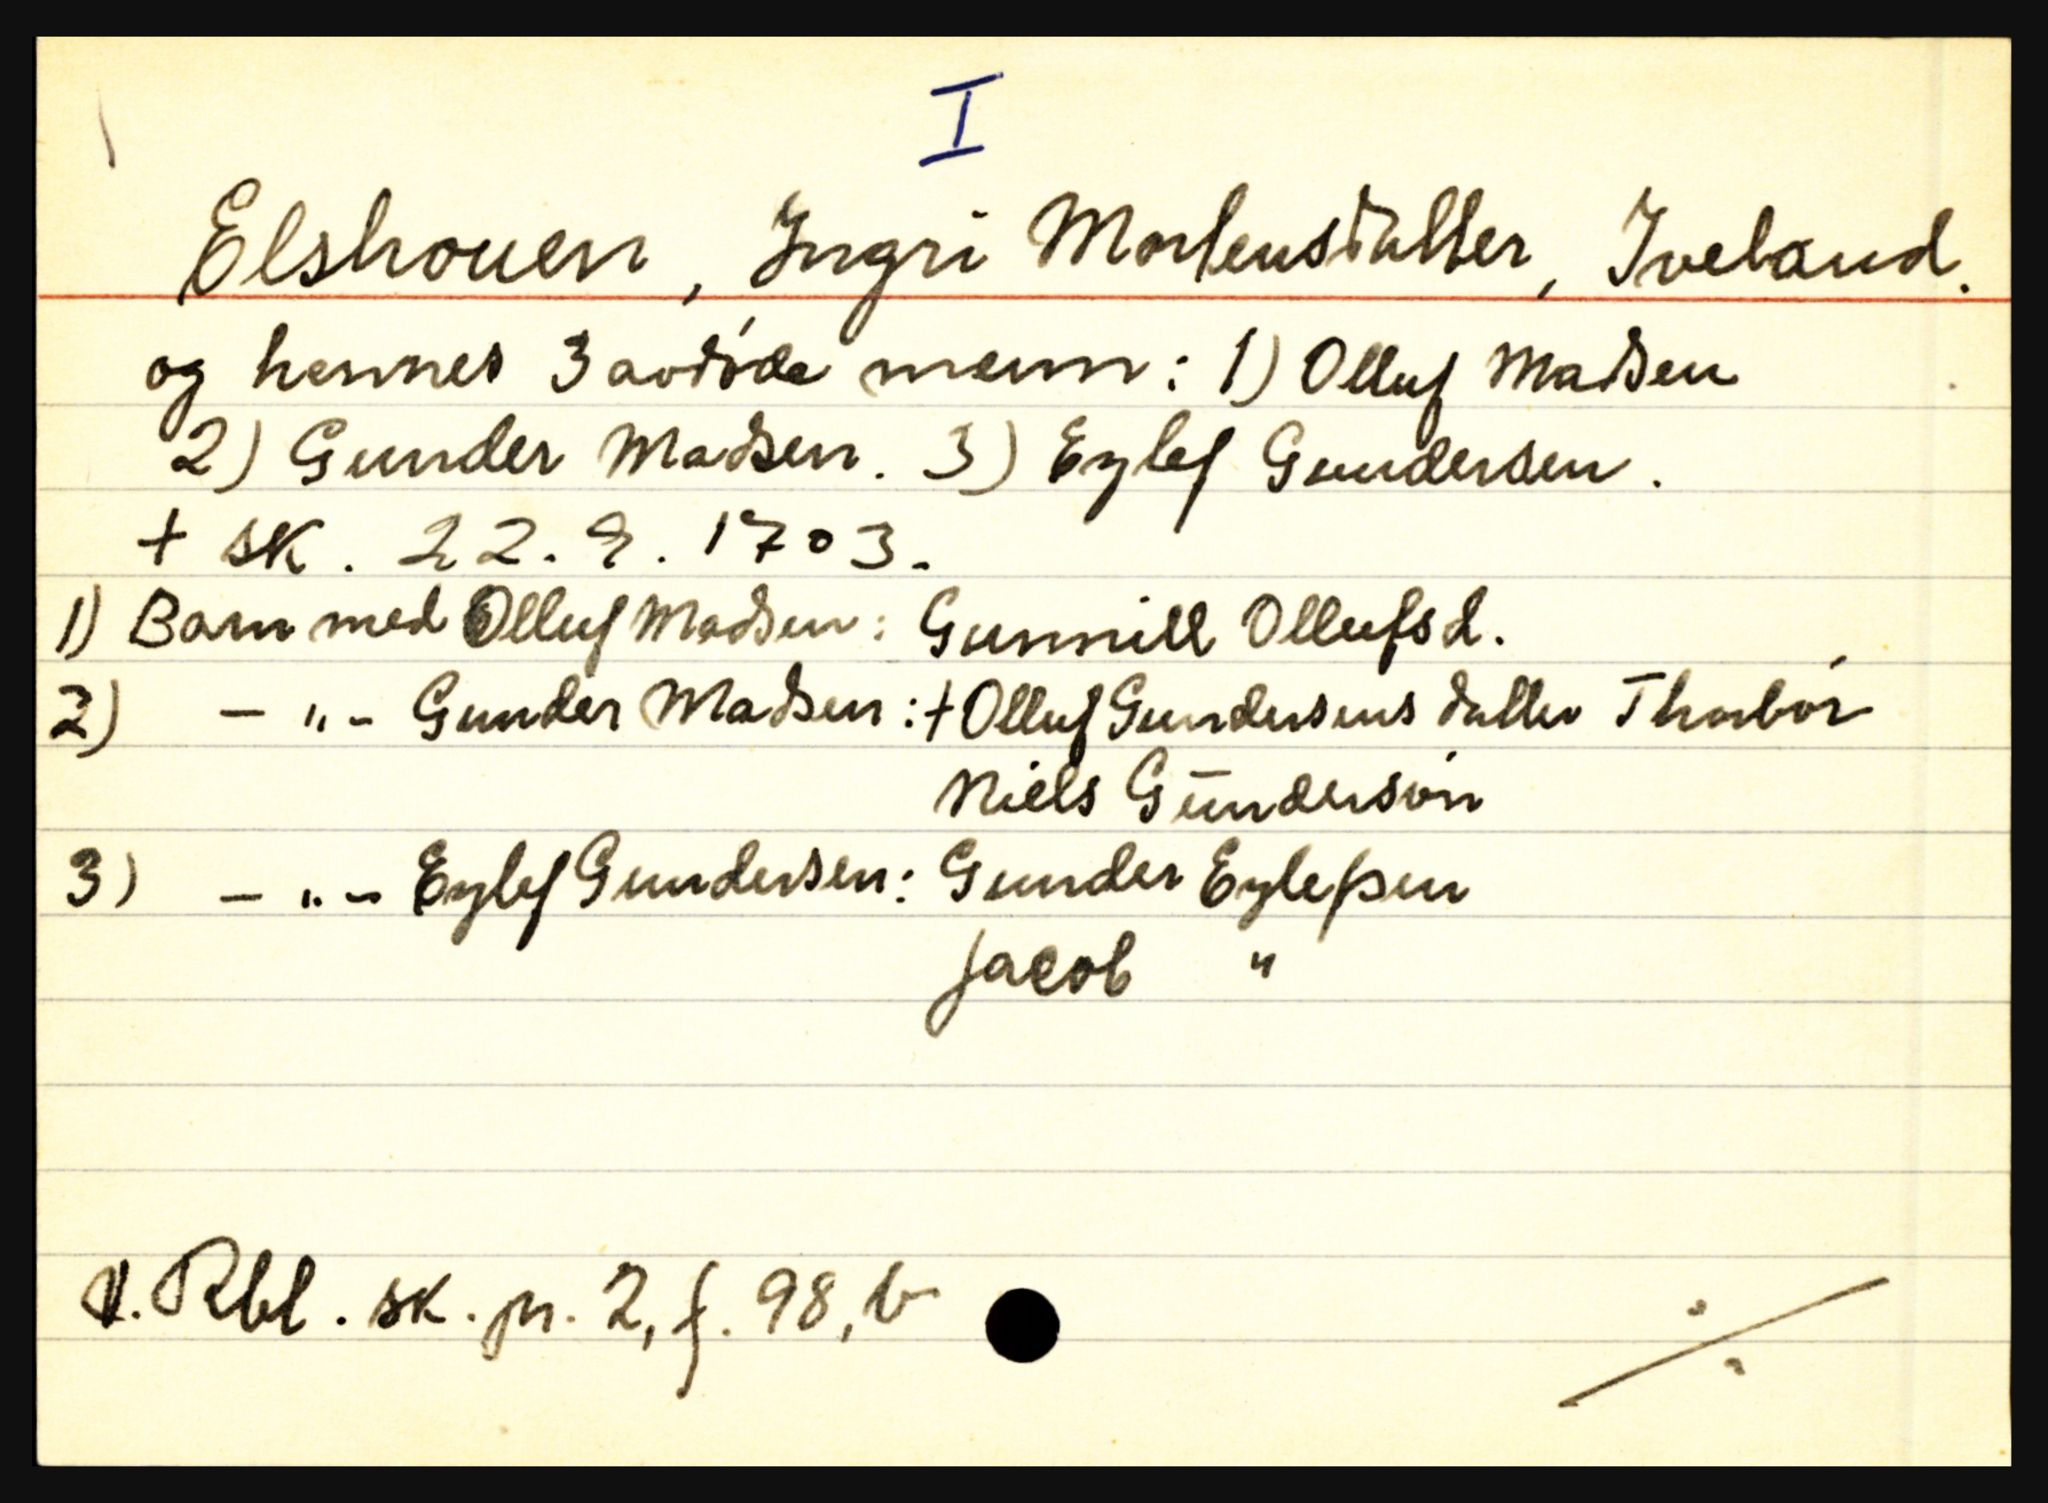 I
Elshouen, Ingri Mortensdatter, Iveland.
og hennes 3 avdøde menn: 1) Olluf Madsen
2) Gunder Madsen. 3) Eylef Gundersen.
+ sk. 22.9.1703.
1) Barn med Olluf Madsen: Gunnill Ollufsd.
2) - " - Gunder Madsen: + Olluf Gundersens datter Thorbør
Niels Gundersøn
3) - " - Eylef Gundersen: Gunder Eylefsen
Jacob "
V. Rbl. sk. pr. 2, f. 98, b